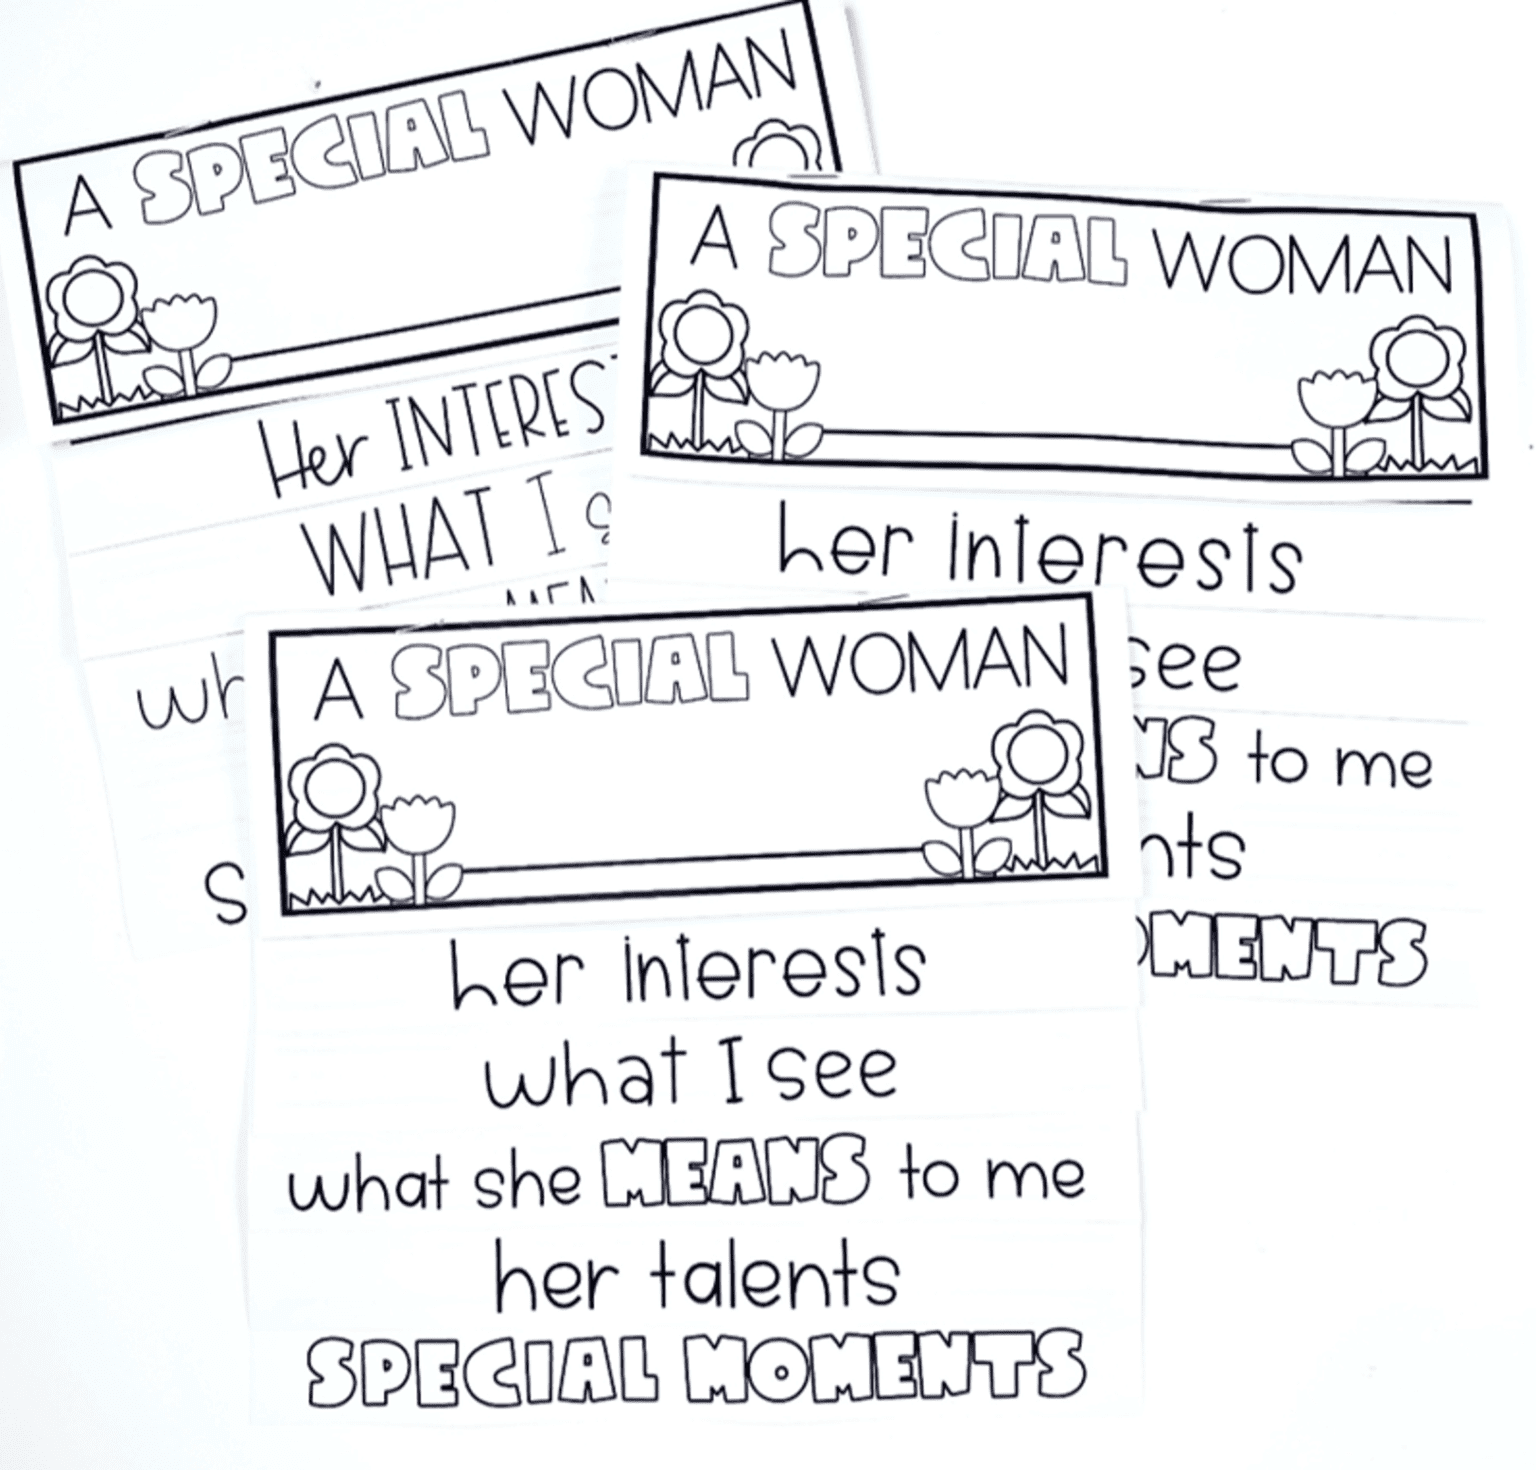 A SPECIAL WOMAN
Her
WHAT I
A SPECIAL WOMAN
her interests
see
to me
A SPECIAL WOMAN
her interests
what I see
what she MEANS to me
her talents
SPECIAL MOMENTS